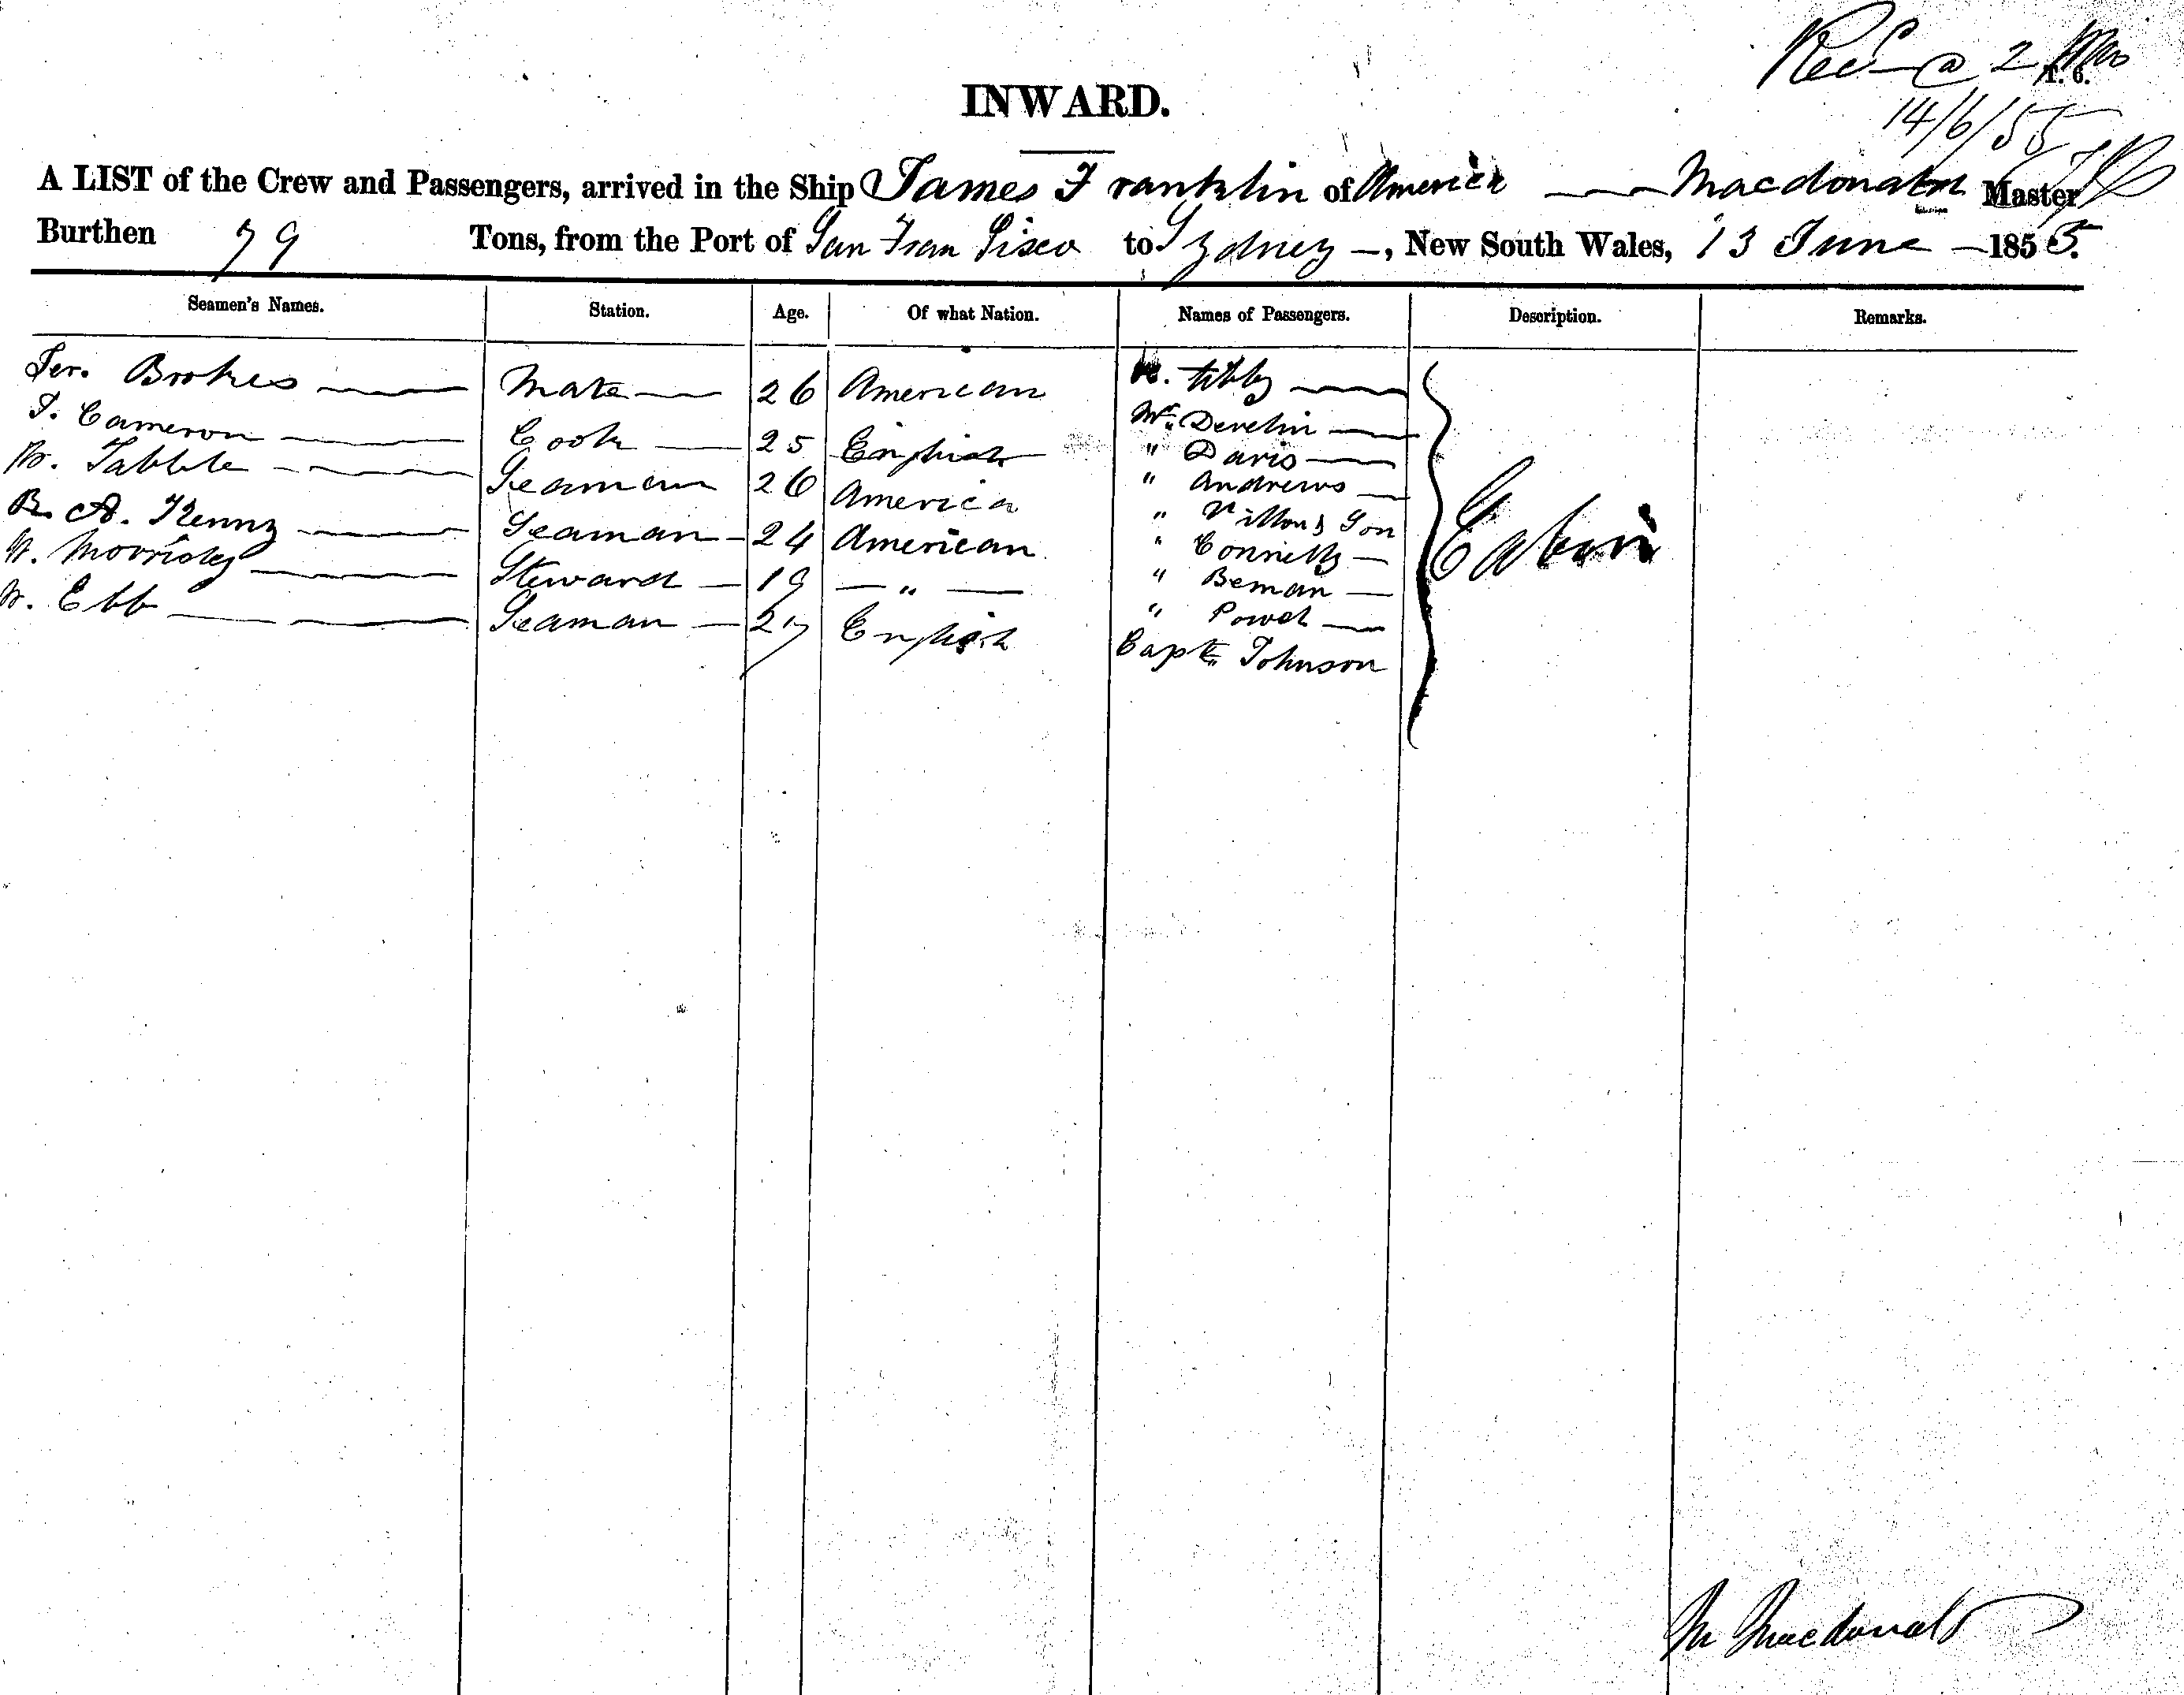 Recd @ 2
T. 6.
14/6/55
INWARD.
A LIST of the Crew and Passengers, arrived in the Ship James Franklin of America — Macdonald Master
Burthen 79 Tons, from the Port of San Fran Sisco to Sydney —, New South Wales, 13 June — 1855.
Seamen's Names. Station. Age. Of what Nation. Names of Passengers. Description. Remarks.
Jer. Brokes — Mate — 26 American
J. Cameron — Cook — 25 English Mr. Develin —
Seaman 26 America " Davis —
R. A. Kenny — Seaman — 24 American " Andrews —
Steward — 19 — " — " & Son
W. Ebb — Seaman — 27 English " Connelly —
" Beman —
" Powel —
Capt. Johnson
Cabin
M Macdonald